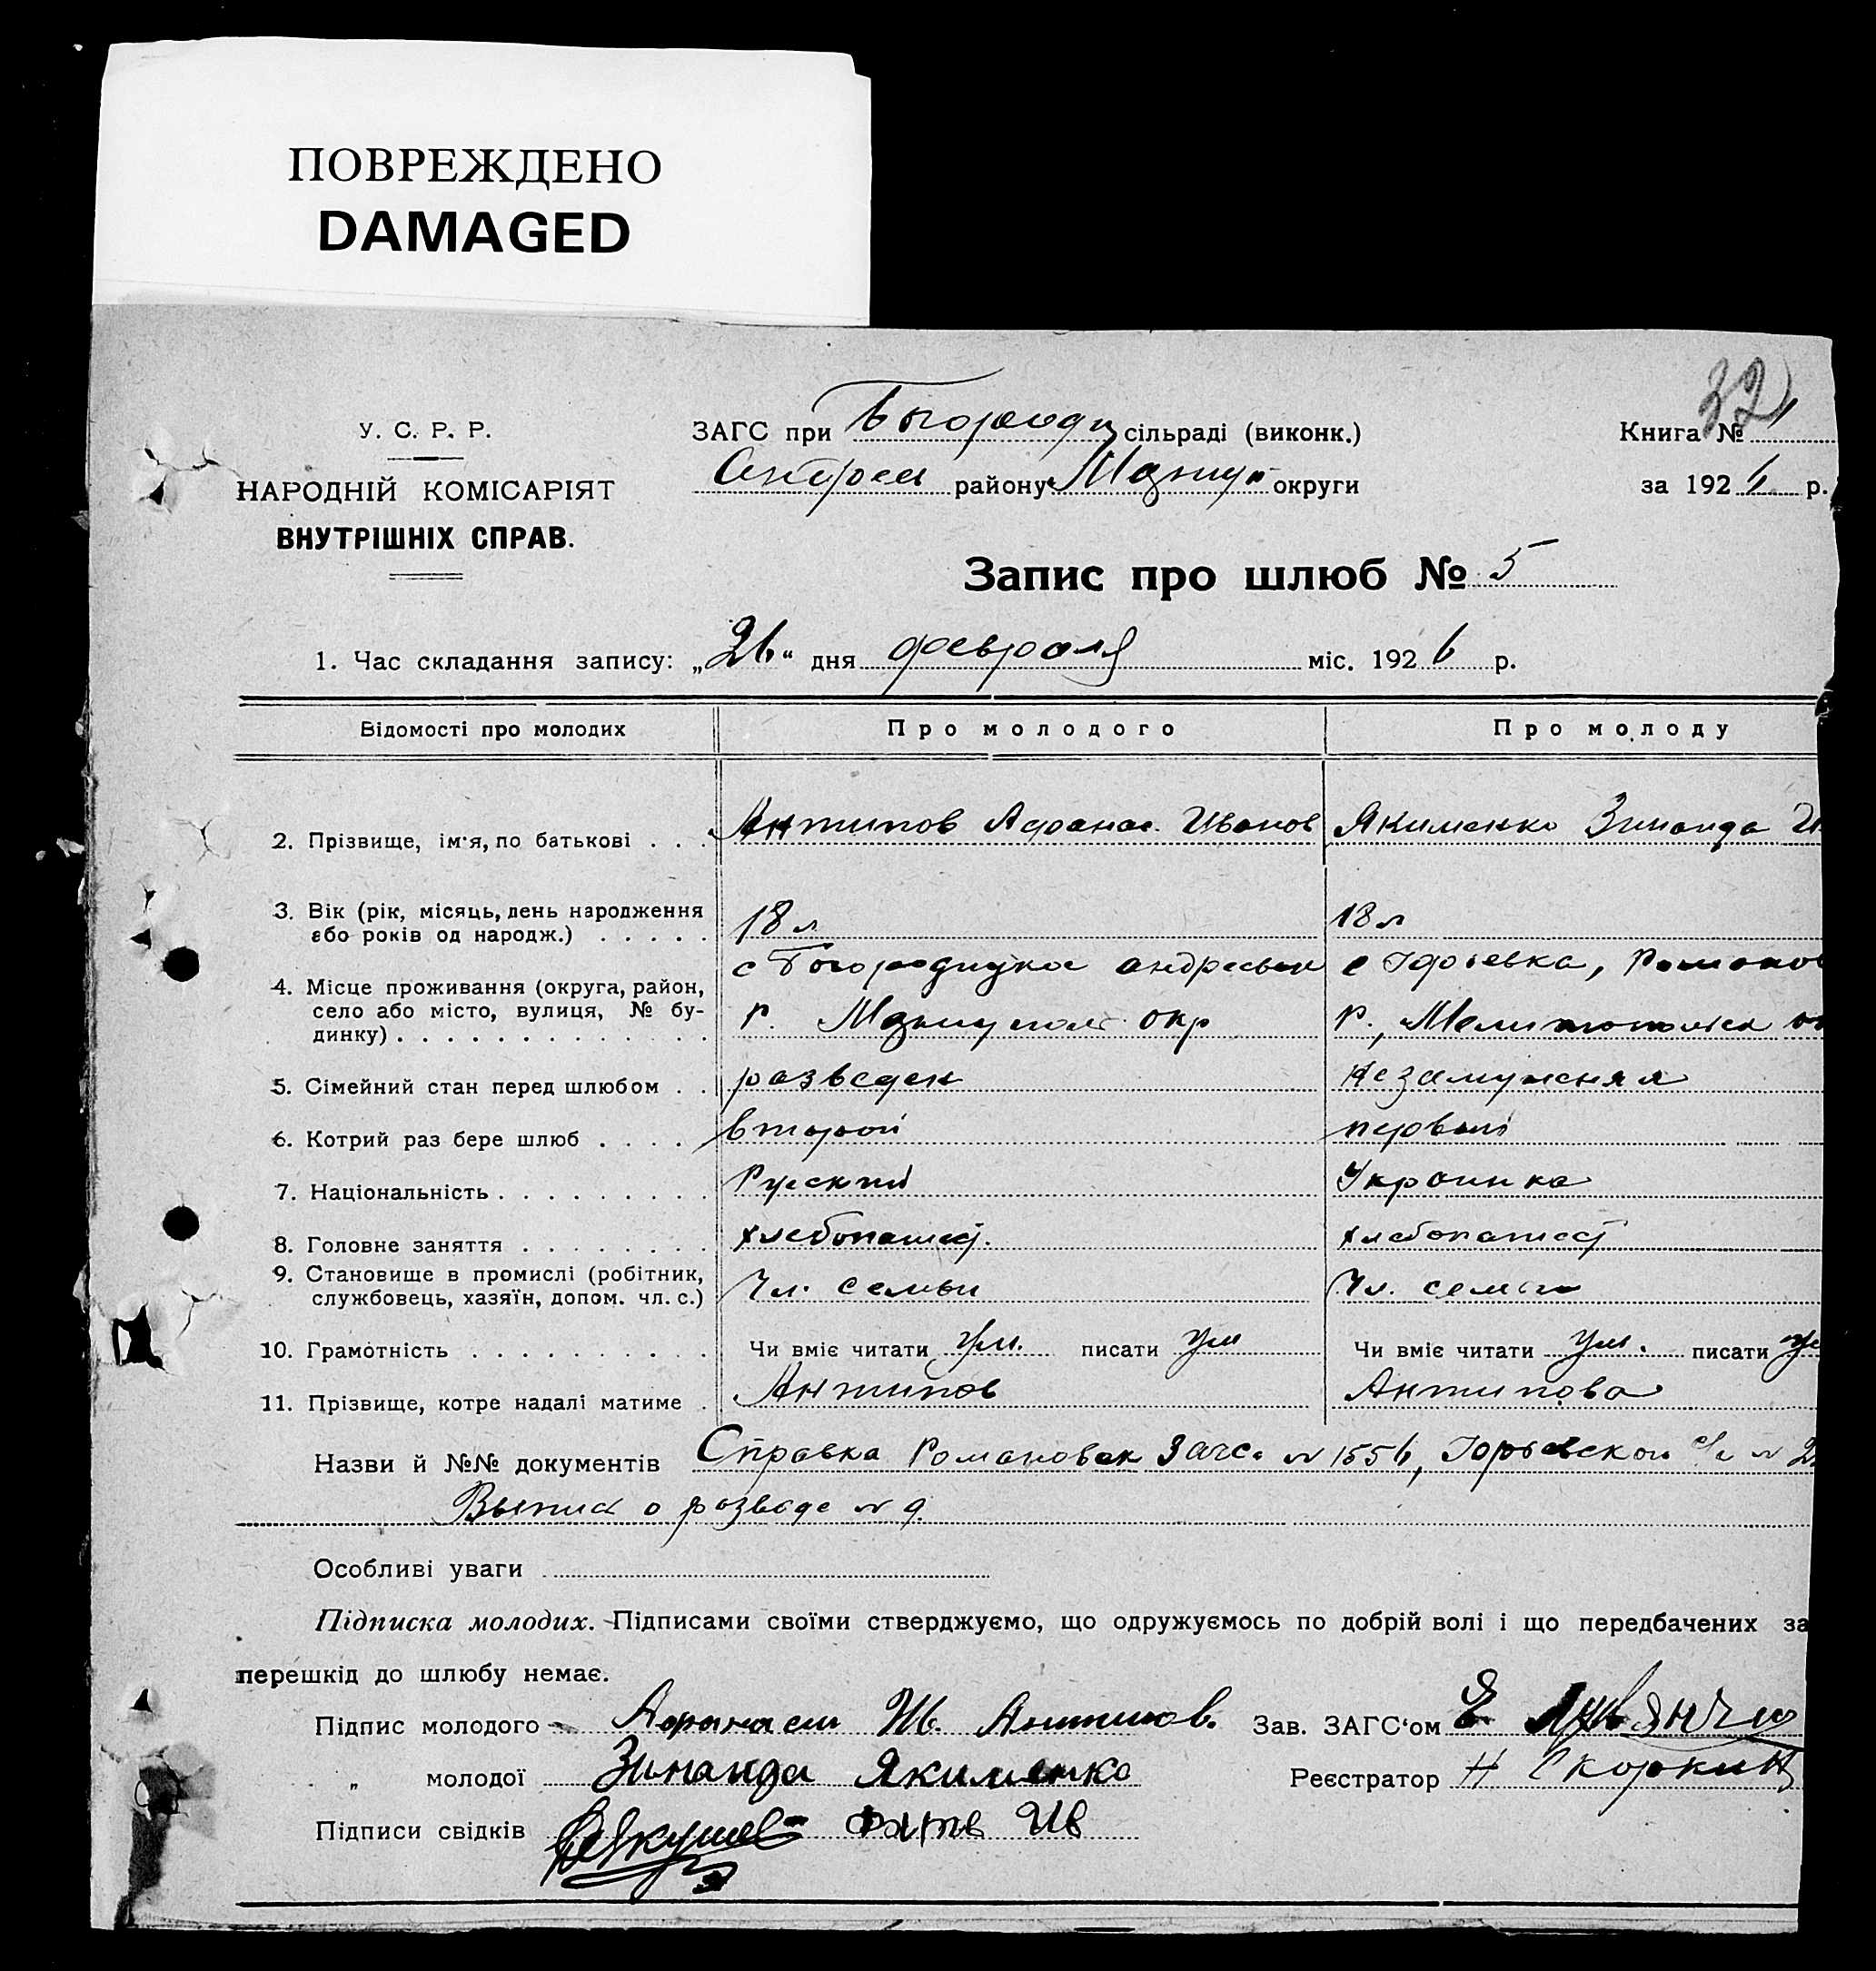 ПОВРЕЖДЕНО
DAMAGED
32
У. С. Р. Р.
НАРОДНІЙ КОМІСАРІЯТ
ВНУТРІШНІХ СПРАВ.
ЗАГС при Богородиц сільраді (виконк.)
Андреев району Мариуп округи
Книга № 1
за 1926 р.
Запис про шлюб № 5
1. Час складання запису: „26“ дня февраля міс. 1926 р.
Відомості про молодих Про молодого Про молоду
2. Прізвище, ім'я, по батькові . . . Антипов Афанас. Иванов Якименко Зинаида И
3. Вік (рік, місяць, день народження
або років од народж.) . . . . . 18 л 18 л
4. Місце проживання (округа, район, с Богородицкое андреевск с Юрьевка, Романов
село або місто, вулиця, № бу- р. Мариупол окр р., Мелитопольск ок
динку) . . . . . . . . . . . . . .
5. Сімейний стан перед шлюбом . . разведен незамужняя
6. Котрий раз бере шлюб . . . . второй первый
7. Національність . . . . . . . . . Руский Украинка
8. Головне заняття . . . . . . . . хлебопашец. хлебопашец
9. Становище в промислі (робітник,
службовець, хазяїн, допом. чл. с.) Чл. семьи Чл. семьи
10. Грамотність . . . . . . . . . . Чи вміє читати ум. писати ум Чи вміє читати ум. писати ум
11. Прізвище, котре надалі матиме . Антипов Антипова
Назви й №№ документів Справка Романовск Загса № 1556, Юрьевской с/с № 2
Выписк о разводе № 9.
Особливі уваги
Підписка молодих. Підписами своїми стверджуємо, що одружуємось по добрій волі і що передбачених за
перешкід до шлюбу немає.
Підпис молодого Афанасий Ив. Антипов. Зав. ЗАГС'ом
„ молодої Зинаида Якименко Реєстратор Н Скоркин
Підписи свідків Ив